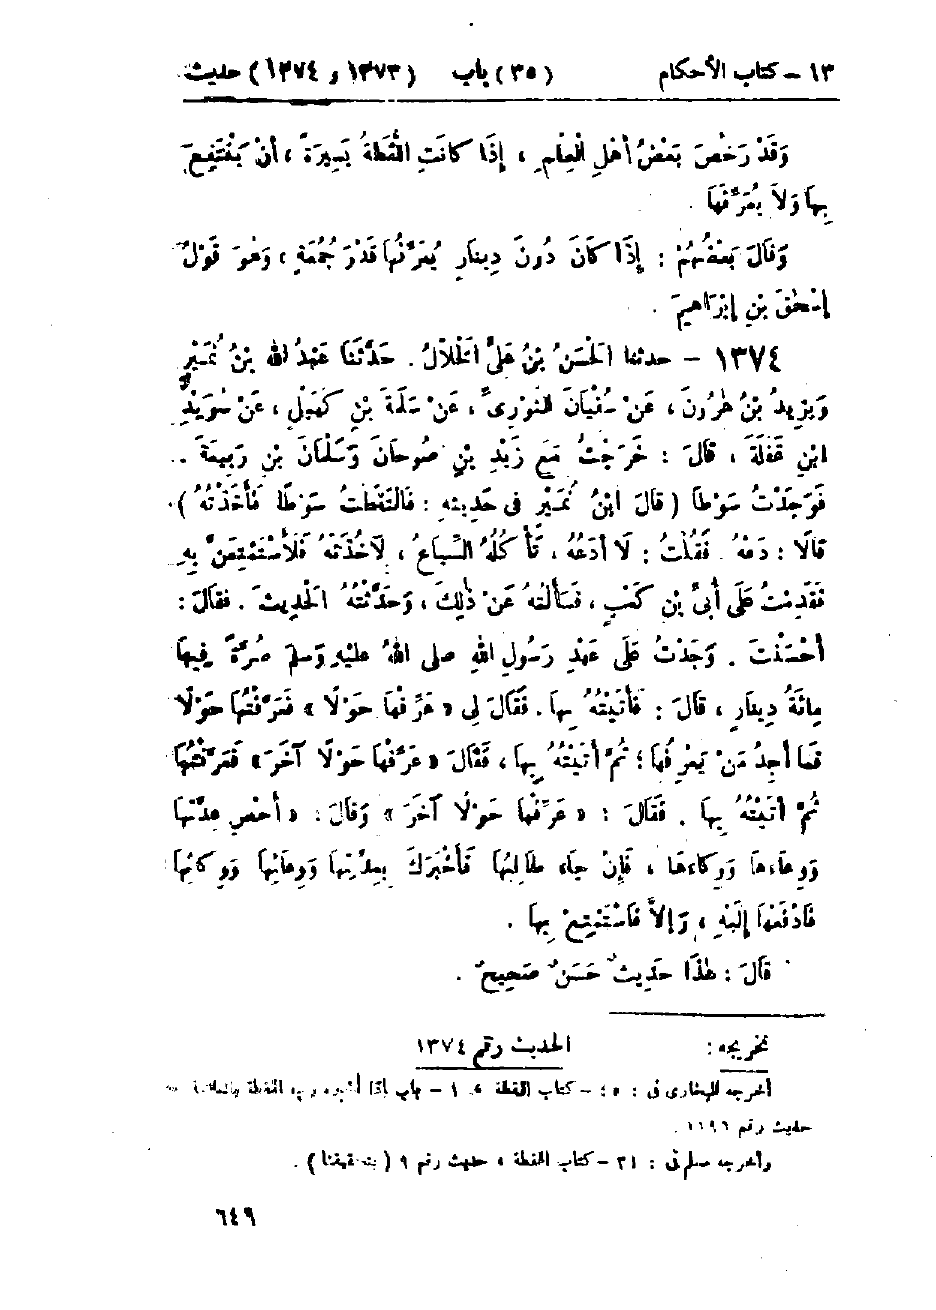 ١٣ - كتاب الأحكام (٣٥) باب (١٣٧٣ و ١٣٧٤) حديث
وَقَدْ رَخَّصَ بَعْضُ أَهْلِ الْعِلْمِ ، إِذَا كَانَتِ اللُّقَطَةُ يَسِيرَةً ، أَنْ يَنْتَفِعَ
بِهَا وَلاَ يُعَرِّفَهَا .
وَقَالَ بَعْضُهُمْ : إِذَا كَانَ دُونَ دِينَارٍ يُعَرِّفُهَا قَدْرَ جُمُعَةٍ ، وَهُوَ قَوْلُ
إِسْحٰقَ بْنِ إِبْرَاهِيمَ .
١٣٧٤ - حدثنا الْحَسَنُ بْنُ عَلِىٍّ الْخَلاَّلُ . حَدَّثَنَا عَبْدُ اللهِ بْنُ نُمَيْرٍ
وَيَزِيدُ بْنُ هٰرُونَ ، عَنْ سُفْيَانَ الثَّوْرِىِّ ، عَنْ سَلَمَةَ بْنِ كُهَيْلٍ ، عَنْ سُوَيْدِ
ابْنِ غَفَلَةَ ، قَالَ : خَرَجْتُ مَعَ زَيْدِ بْنِ صُوحَانَ وَسَلْمَانَ بْنِ رَبِيعَةَ .
فَوَجَدْتُ سَوْطًا ( قَالَ ابْنُ نُمَيْرٍ فِى حَدِيثِهِ : فَالْتَقَطْتُ سَوْطًا فَأَخَذْتُهُ ) .
قَالَا : دَعْهُ . فَقُلْتُ : لَا أَدَعُهُ ، تَأْكُلُهُ السِّبَاعُ ، لَآخُذَنَّهُ فَلَأَسْتَمْتِعَنَّ بِهِ .
فَقَدِمْتُ عَلَى أُبَىِّ بْنِ كَعْبٍ ، فَسَأَلْتُهُ عَنْ ذٰلِكَ ، وَحَدَّثْتُهُ الْحَدِيثَ . فَقَالَ :
أَحْسَنْتَ . وَجَدْتُ عَلَى عَهْدِ رَسُولِ اللهِ صلى اللهُ عليهِ وَسلمَ صُرَّةً فِيهَا
مِائَةُ دِينَارٍ ، قَالَ : فَأَتَيْتُهُ بِهَا . فَقَالَ لِى « عَرِّفْهَا حَوْلًا » فَعَرَّفْتُهَا حَوْلًا
فَمَا أَجِدُ مَنْ يَعْرِفُهَا ؛ ثُمَّ أَتَيْتُهُ بِهَا ، فَقَالَ « عَرِّفْهَا حَوْلًا آخَرَ » فَعَرَّفْتُهَا
ثُمَّ أَتَيْتُهُ بِهَا . فَقَالَ : « عَرِّفْهَا حَوْلًا آخَرَ » وَقَالَ : « أَحْصِ عِدَّتَهَا
وَوِعَاءَهَا وَوِكَاءَهَا ، فَإِنْ جَاءَ طَالِبُهَا فَأَخْبَرَكَ بِعِدَّتِهَا وَوِعَائِهَا وَوِكَائِهَا
فَادْفَعْهَا إِلَيْهِ ، وَإِلاَّ فَاسْتَمْتِعْ بِهَا .
قَالَ : هٰذَا حَدِيثٌ حَسَنٌ صَحِيحٌ .
تخريجه : الحديث رقم ١٣٧٤
أخرجه البخارى فى : ٤٥ - كتاب اللقطة ، ١ - باب إذا أخبره رب اللقطة بالعلامة
حديث رقم ١١٩٦ .
وأخرجه مسلم فى : ٣١ - كتاب اللقطة ، حديث رقم ٩ ( بتحقيقنا ) .
٦٤٩